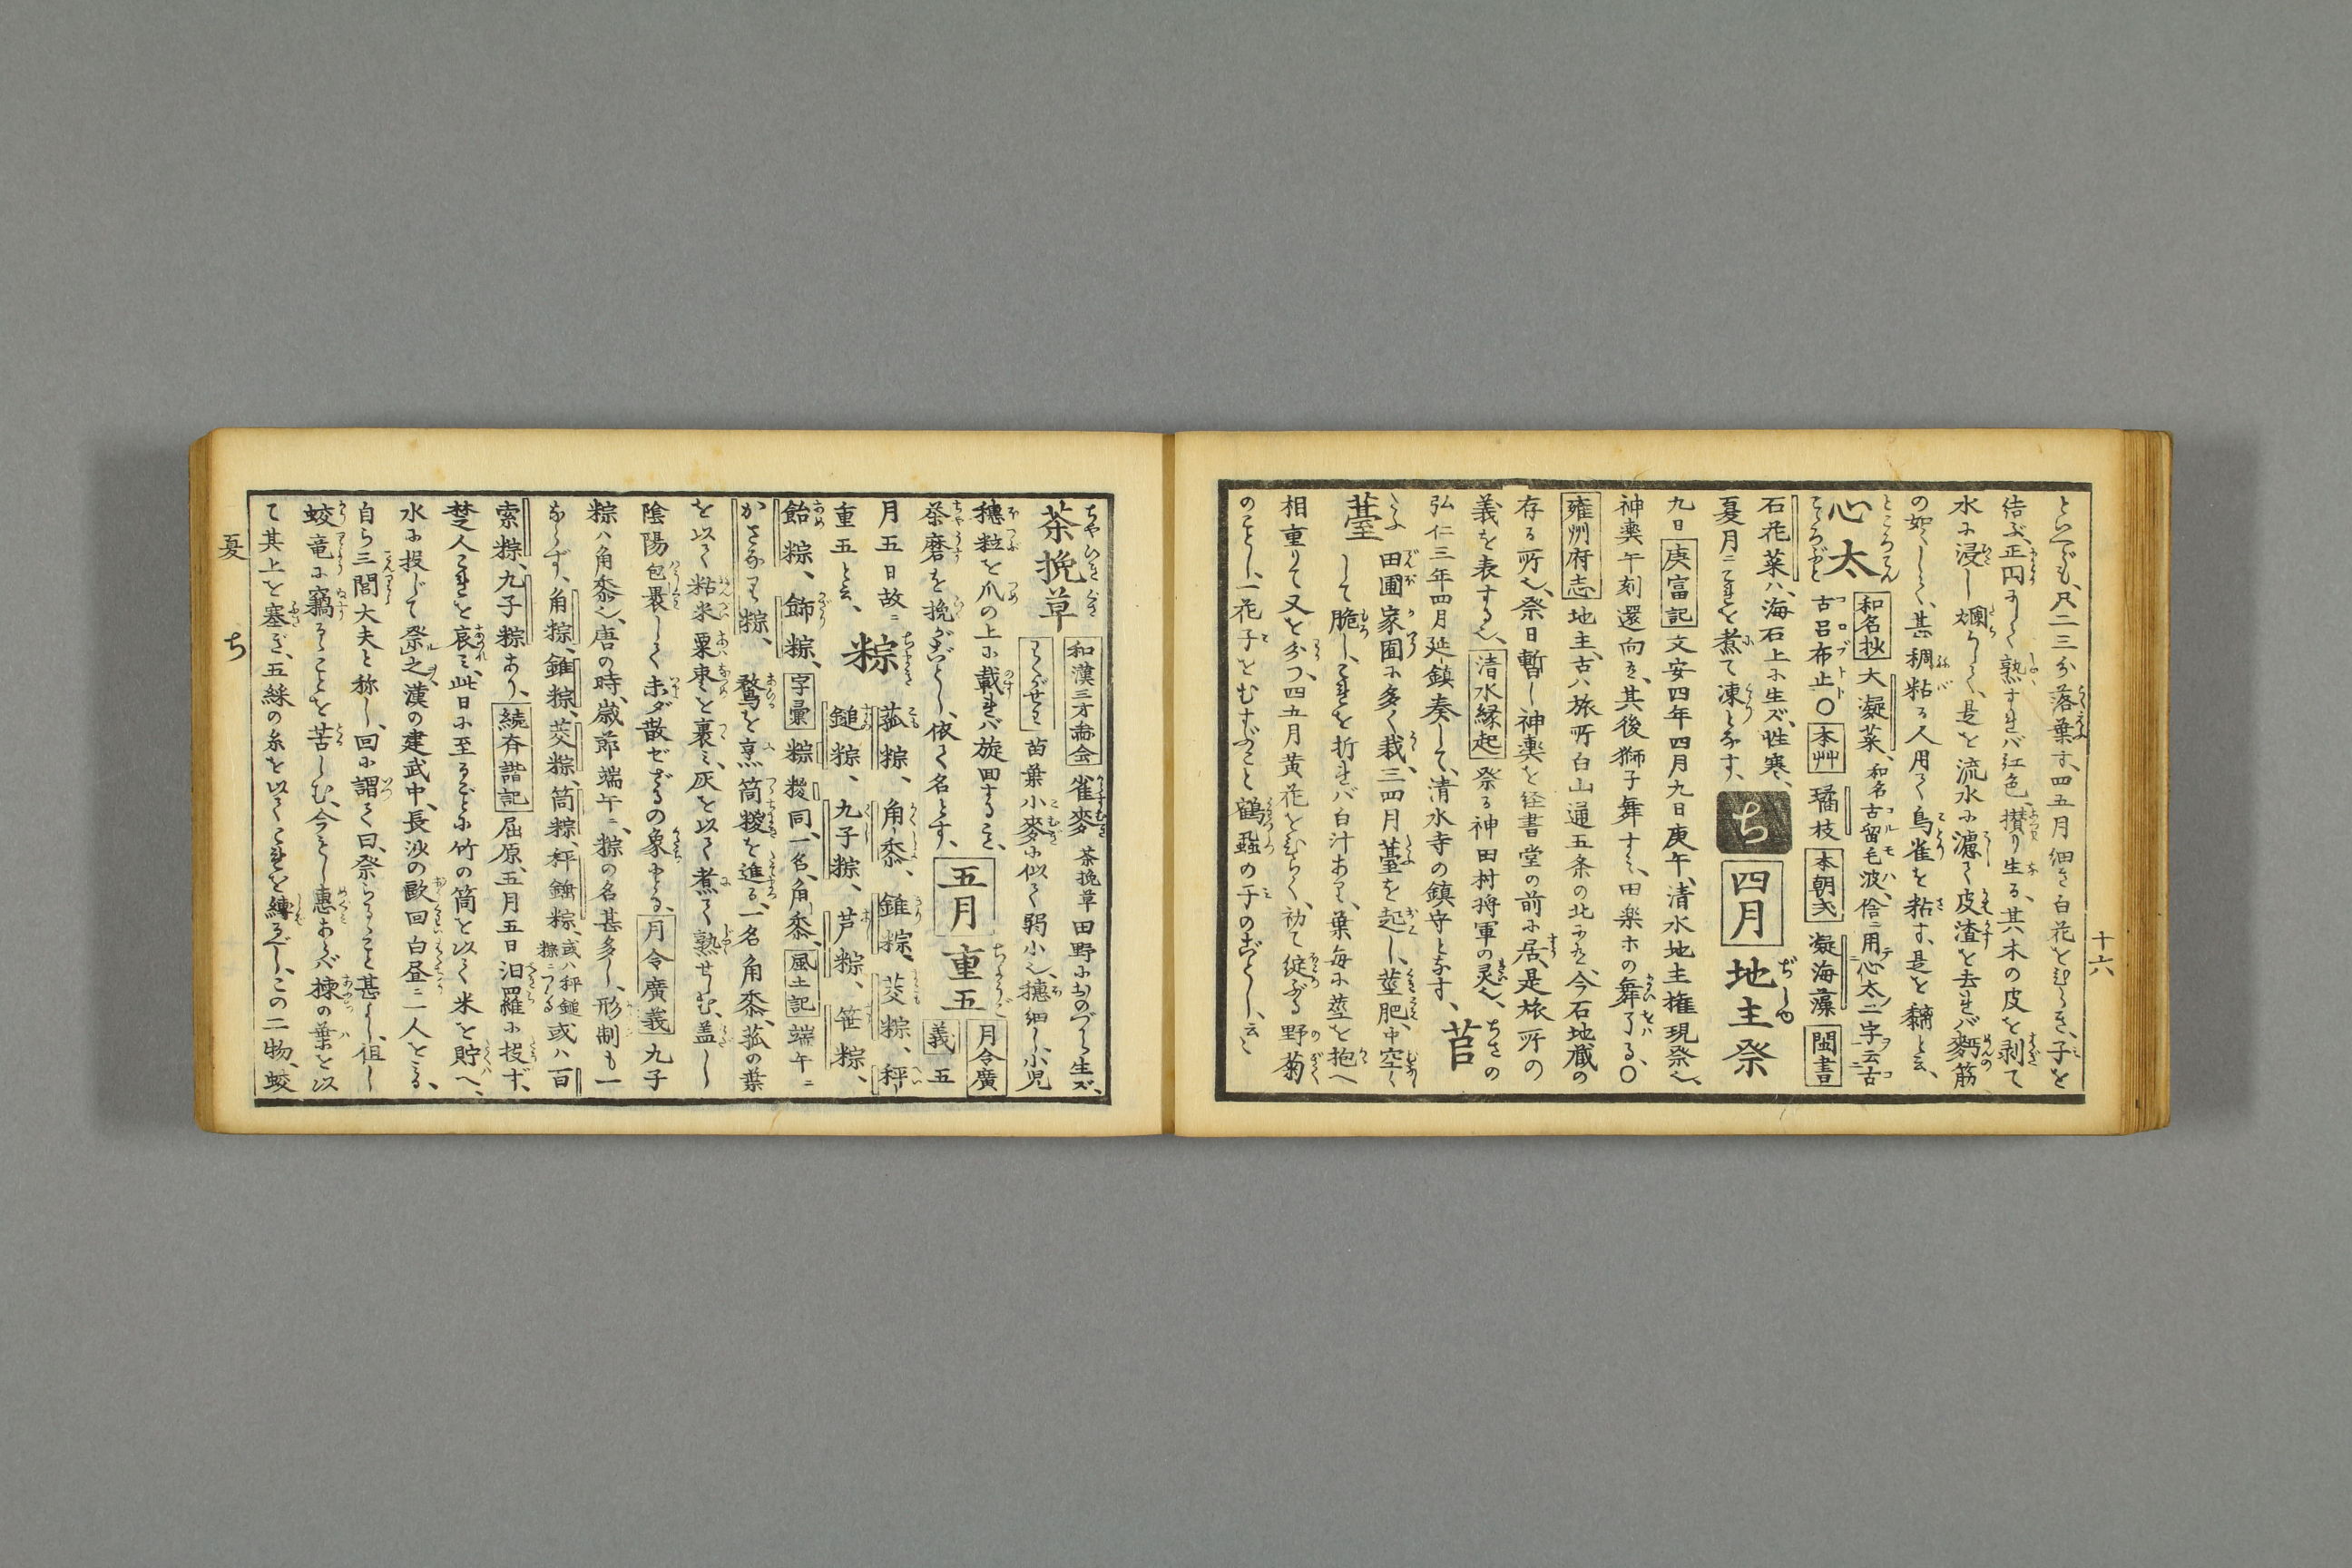 十六
といへども、尺二三分落葉す、四五月細き白花をひらき、子を
結ぶ、正円にして熟すれバ紅色、攅り生る、其木の皮を剥て
水に浸し爛らし、是を流水に濾て皮渣を去れバ麪筋
の如くして、甚稠粘る人用て鳥雀を粘す、是を黐と云、
心太 ところてん こころぶと 和名抄 大凝菜、和名古留毛波、俗ニ用心太二字云古
古呂布止〇本艸 璚枝 本朝式 凝海藻 閩書
石花菜ハ、海石上に生ズ、性寒、
夏月ニこれを煮て凍となす、 ち 四月 地主祭 ぢしゆ
九日 庚富記 文安四年四月九日庚午、清水地主権現祭也、
神輿午刻還向云、其後獅子舞す云、田楽ホの舞了る、〇
雍州府志 地主、古ハ旅所白山通五条の北に在、今石地蔵の
存る所也、祭日暫し神輿を経書堂の前に居、是旅所の
義を表する也、清水縁起 祭る神田村将軍の霊也、
弘仁三年四月延鎮奏して、清水寺の鎮守となす、 苣 ちさの
薹 とう 田圃家園に多く栽、三四月薹を起し、莖肥、中空く
して脆し、これを折れバ白汁あり、葉毎に莖を抱へ
相重りて又を分つ、四五月黄花をひらく、初て綻ぶる野菊
のことし、一花子をむすぶこと鶴蝨の子のごとし、云々
茶挽草 ちやひきぐさ 和漢三才圖会 雀麥 茶挽草 田野におのづから生ズ、
苗葉小麥に似て弱小也、穂細し、小児
穗粒を爪の上に載れバ旋回すること、
茶磨を挽がごとし、依て名とす、 五月 重五 ちようご 月令廣義 五
月五日故ニ
重五と云、 粽 ちまき 菰粽、角黍、錐粽、茭粽、秤
鎚粽、九子粽、芦粽、笹粽、
飴粽、飾粽、字彙 粽糉同、一名、角黍、風土記 端午ニ
かさなり粽、鶩を烹筒糉を進る、一名角黍、菰の葉
を以て粘米粟棗を裹ミ、灰を以て煮て熟せしむ、盖し
陰陽包裹して未ダ散ゼざるの象也とる、月令廣義 九子
粽ハ角黍也、唐の時、歳節端午ニ、粽の名甚多し、形制も一
ならず、角粽、錐粽、茭粽、筒粽、秤鎚粽、或ハ秤鎚 或ハ百
索粽、九子粽あり、続斉諧記 屈原、五月五日汨羅に投ず、
楚人これを哀ミ、此日に至るごとに竹の筒を以て米を貯へ、
水に投じて祭之、漢の建武中、長沙の歐回白昼ニ一人をみる、
自ら三閭大夫と称し、回に謂て曰、祭らるゝこと甚よし、但し
蛟竜に竊るゝことを苦しむ、今もし惠あらバ楝の葉を以
て其上を塞ぎ、五綵の糸を以てこれを縛るべし、この二物、蛟
夏
ち